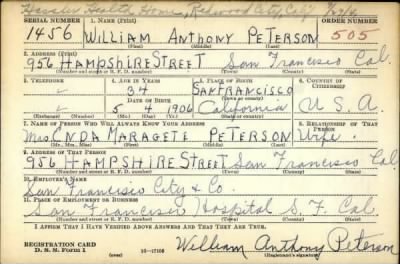 Hassler Health Home, Redwood City, Cal.
SERIAL NUMBER 1. NAME (Print) ORDER NUMBER
1456 WILLIAM ANTHONY PETERSON 505
(First) (Middle) (Last)
2. ADDRESS (Print)
956 HAMPSHIRE STREET San Francisco Cal.
(Number and street or R. F. D. number) (Town) (County) (State)
3. TELEPHONE 4. AGE IN YEARS 5. PLACE OF BIRTH 6. COUNTRY OF CITIZENSHIP
34 SAN FRANCISCO
(Town or county)
DATE OF BIRTH
5 4 1906 California U.S.A.
(Mo.) (Day) (Yr.) (State or country)
7. NAME OF PERSON WHO WILL ALWAYS KNOW YOUR ADDRESS 8. RELATIONSHIP OF THAT PERSON
Mrs MARAGETE PETERSON Wife
(Mr., Mrs., Miss) (First) (Middle) (Last)
9. ADDRESS OF THAT PERSON
956 HAMPSHIRE STREET San Francisco Cal
(Number and street or R. F. D. number) (Town) (County) (State)
10. EMPLOYER'S NAME
San Francisco City & Co.
11. PLACE OF EMPLOYMENT OR BUSINESS
San Francisco Hospital S.F. Cal.
(Number and street or R. F. D. number) (Town) (County) (State)
I AFFIRM THAT I HAVE VERIFIED ABOVE ANSWERS AND THAT THEY ARE TRUE.
REGISTRATION CARD
D. S. S. Form 1 16-17105 William Anthony Peterson
(Registrant's signature)